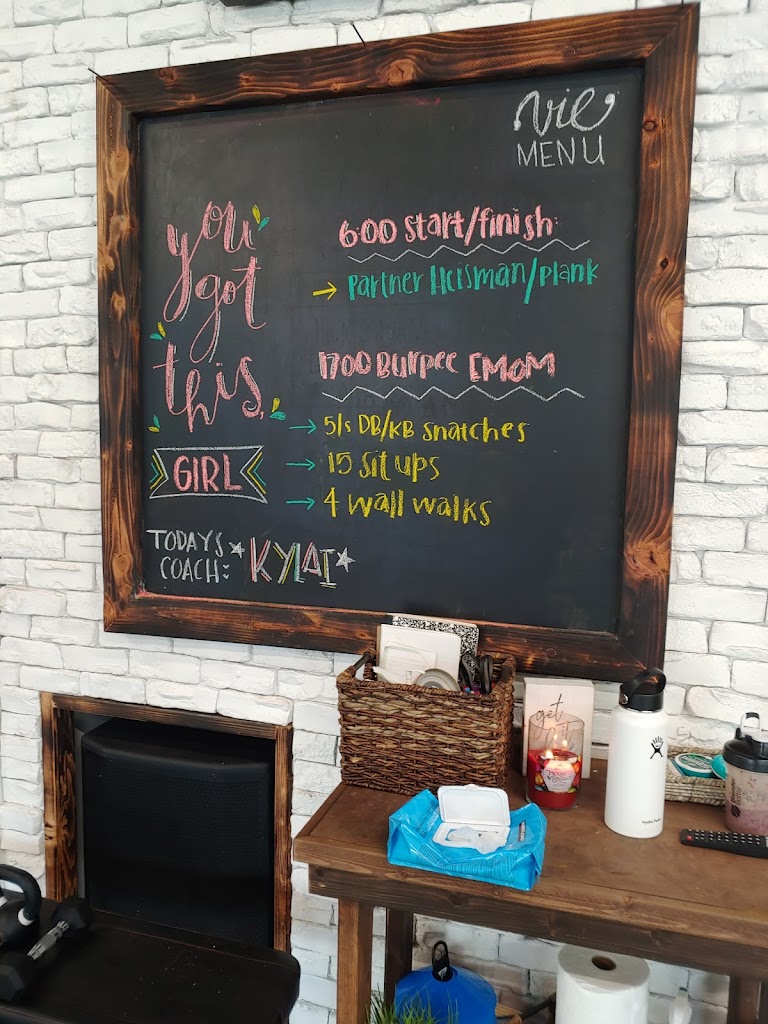 vie
MENU
you
got
this,
GIRL
TODAYS
COACH:
*KYLAI*
6:00 start/finish:
→ Partner Heisman/Plank
1700 Burpee EMOM
→ 5/s DB/KB snatches
→ 15 sit ups
→ 4 wall walks
get
Hydro Flask